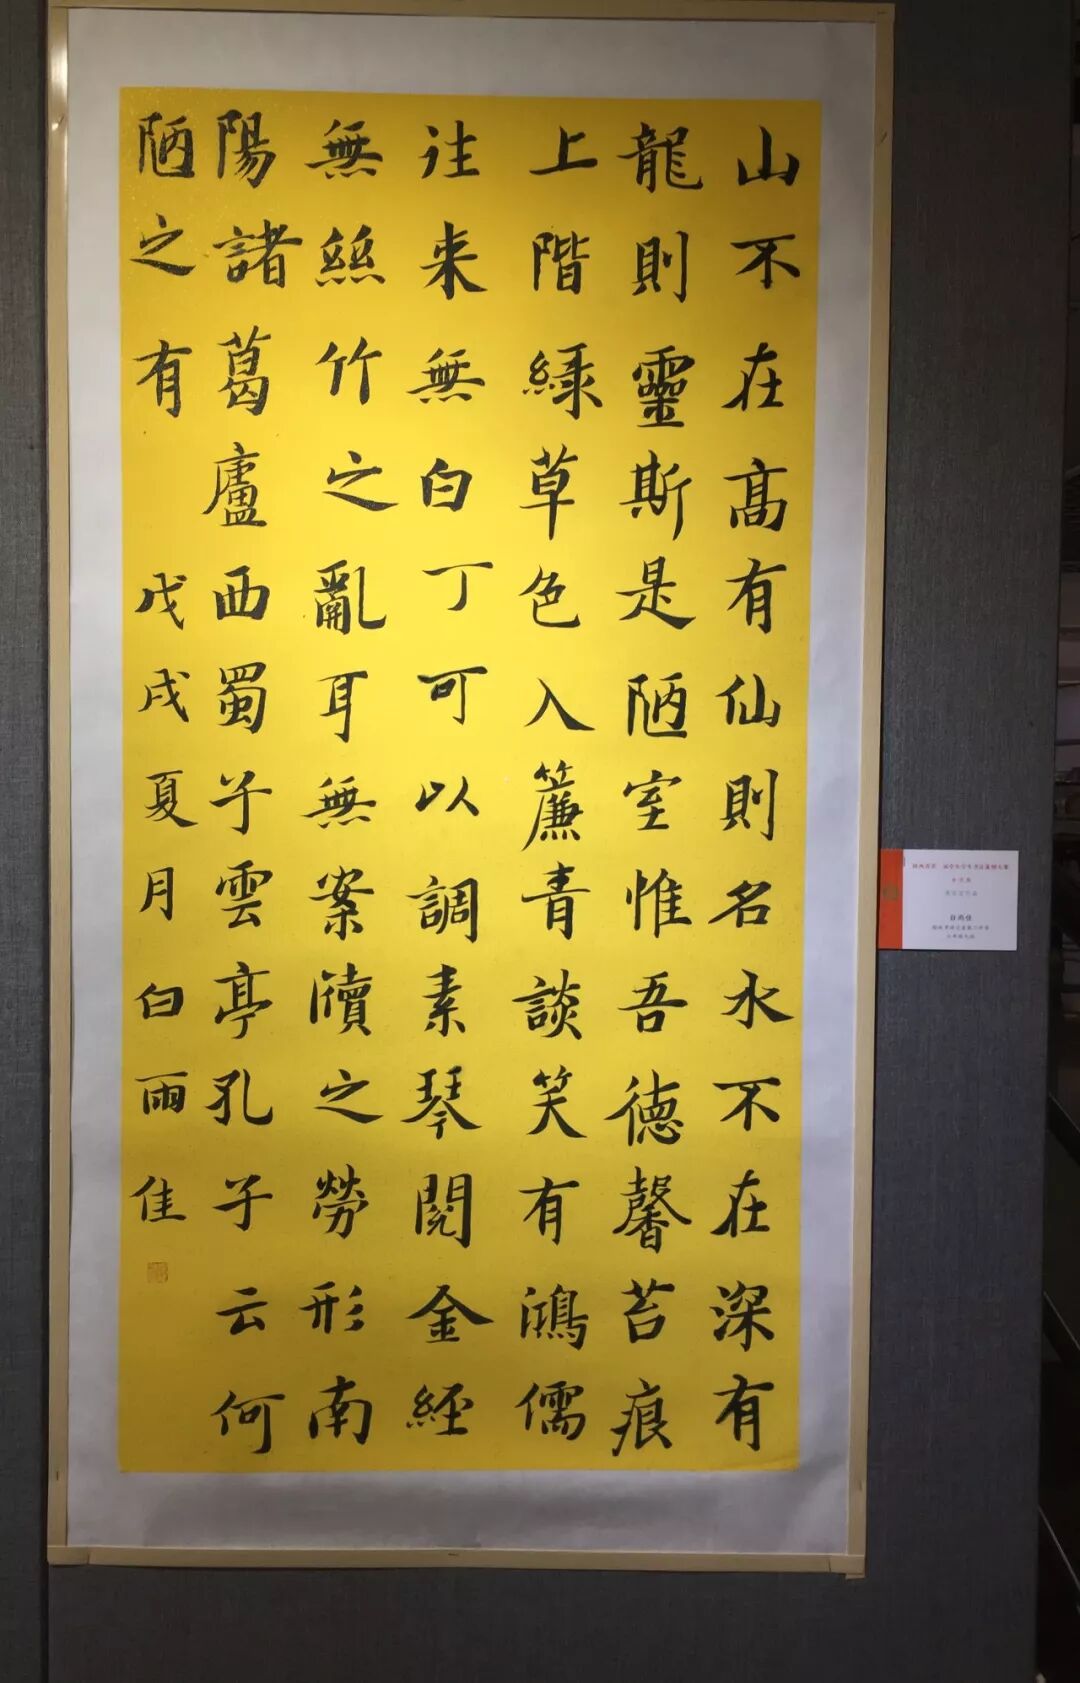 山不在高有仙則名水不在深有
龍則靈斯是陋室惟吾德馨苔痕
上階綠草色入簾青談笑有鴻儒
往来無白丁可以調素琴閱金經
無絲竹之亂耳無案牘之勞形南
陽諸葛廬西蜀子雲亭孔子云何
陋之有 戊戌夏月白雨佳